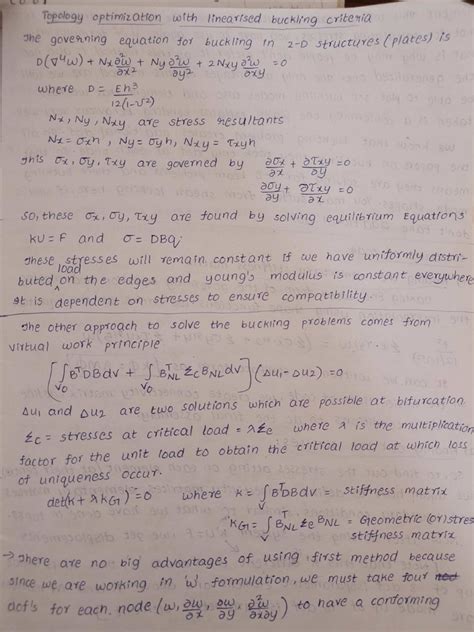 Topology optimization with linearised buckling criteria
The governing equation for buckling in 2-D structures (plates) is
D(∇⁴ω) + Nx ∂²ω/∂x² + Ny ∂²ω/∂y² + 2Nxy ∂²ω/∂xy = 0
where D = Eh³/12(1-ν²)
Nx, Ny, Nxy are stress resultants
Nx = σxh , Ny = σyh, Nxy = τxyh
This σx, σy, τxy are governed by ∂σx/∂x + ∂τxy/∂y = 0
∂σy/∂y + ∂τxy/∂x = 0
So, these σx, σy, τxy are found by solving equilibrium Equations
KU = F and σ = DBq;
These stresses will remain constant if we have uniformly distri-
buted load on the edges and young's modulus is constant everywhere
It is dependent on stresses to ensure compatibility.
The other approach to solve the buckling problems comes from
virtual work principle
[∫v₀ BᵀDB dv + ∫v₀ BᵀNL Σc BNL dv] (Δu₁ - Δu₂) = 0
Δu₁ and Δu₂ are two solutions which are possible at bifurcation.
Σc = stresses at critical load = λΣe where λ is the multiplication
factor for the unit load to obtain the critical load at which loss
of uniqueness occur.
det(K + λ KG) = 0 where K = ∫v BᵀDB dv = stiffness matrix
KG = ∫v BᵀNL Σe BNL = Geometric (or) stress
stiffness matrix
→ There are no big advantages of using first method because
since we are working in 'ω' formulation, we must take four
dof's for each node (ω, ∂ω/∂x, ∂ω/∂y, ∂²ω/∂x∂y) to have a conforming